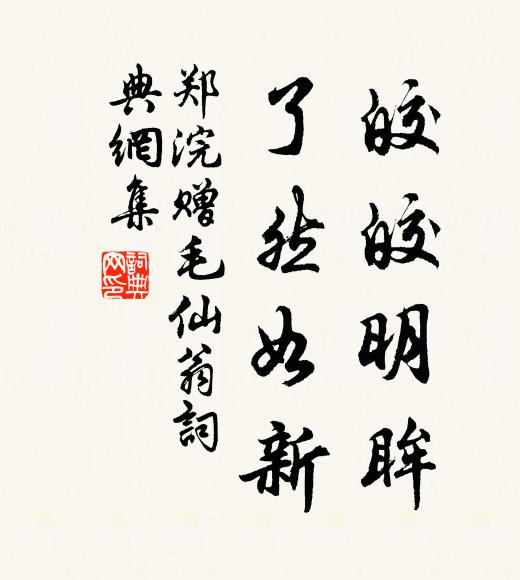 皎皎明眸
了然如新
郑浣赠毛仙翁詞
典網集
詞典网印